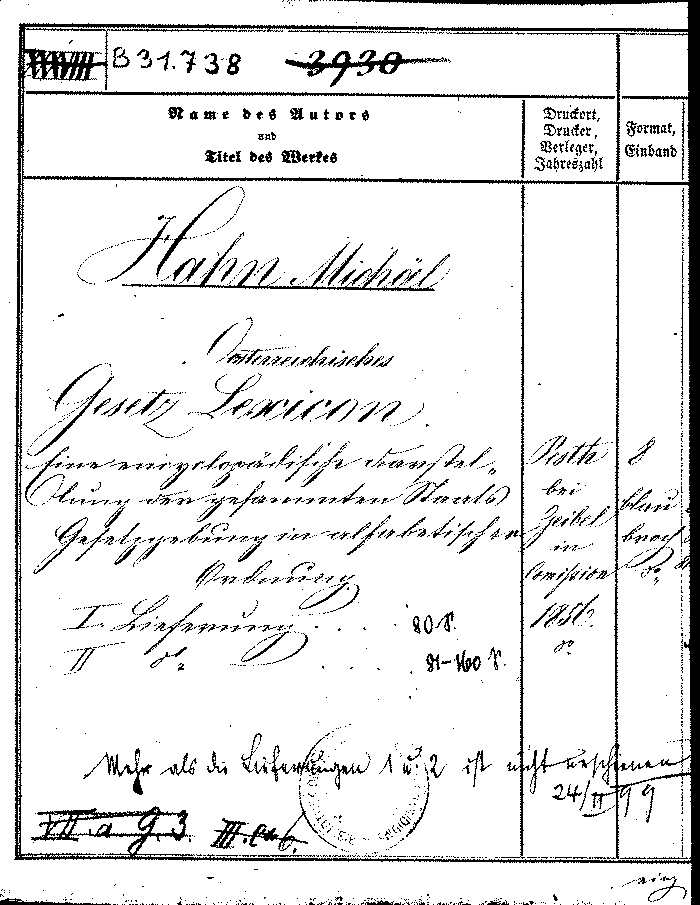 B 31.738 3930
Name des Autors
und
Titel des Werkes
Druckort,
Drucker,
Verleger,
Jahreszahl
Format,
Einband
Hahn Michäel
Oesterreichisches
Gesetz Lexicon.
Eine encyclopädische Darstel-
lung der gesammten Staats
Gesetzgebung in alfabetischer
Ordnung
Pesth
bei
Zeibel
in
Comission
1856.
do
8
blau
broch
do
I. Lieferung . . . . 80 S.
II do . . . 81-160 S.
Mehr als die Lieferungen 1 u. 2 ist nicht erschienen
24/II 99
VII. a g. 3.